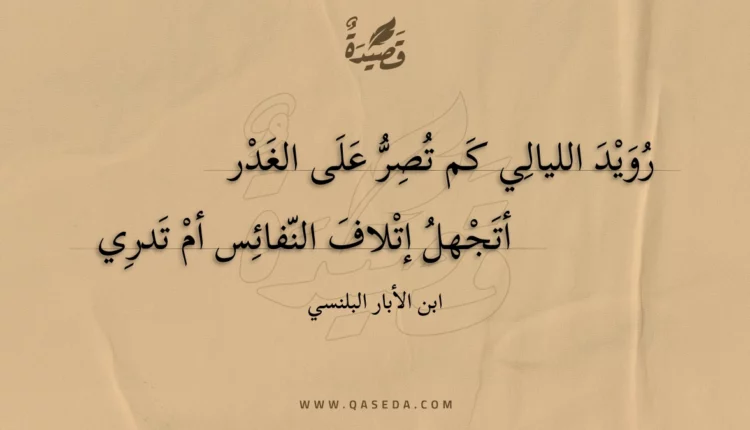 قَصِيدَةٌ
رُوَيْدَ الليالِي كَم تُصِرُّ عَلَى الغَدْر
أتَجْهلُ إتْلافَ النّفائِس أمْ تَدرِي
ابن الأبار البلنسي
WWW.QASEDA.COM